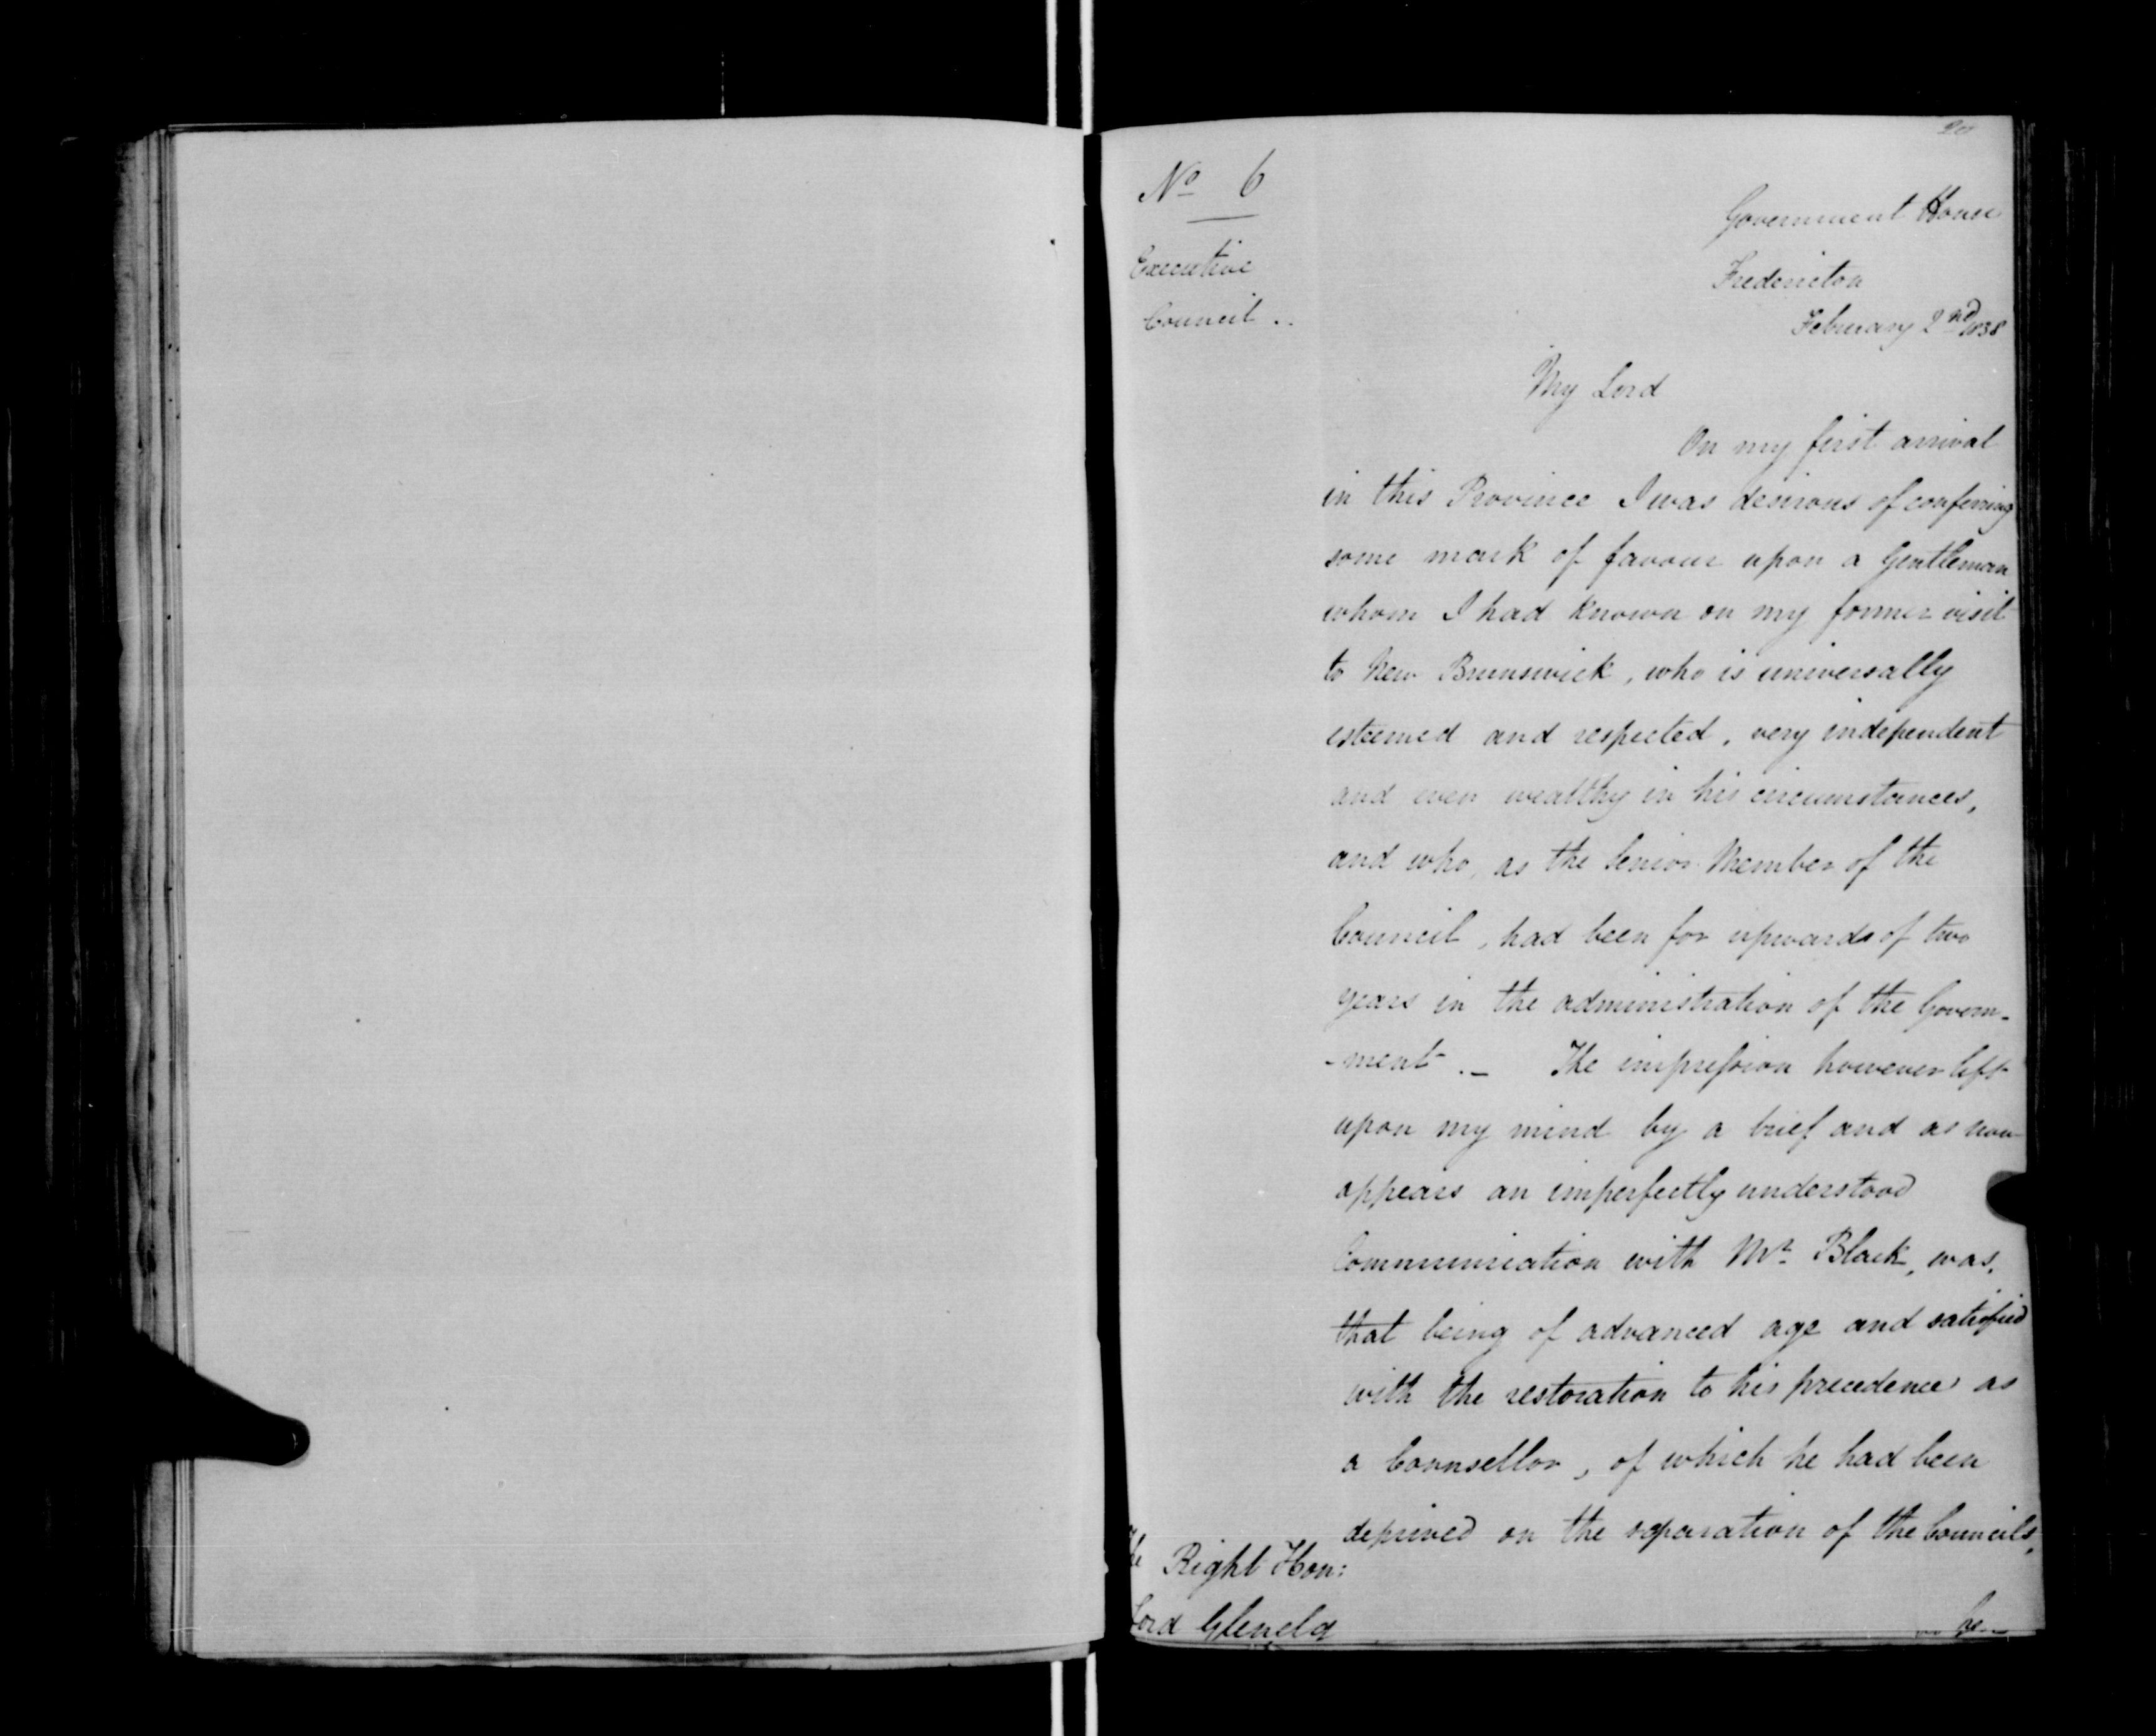 20
No 6
Executive
Council ..
Government House
Fredericton
February 2nd 1838
My Lord
On my first arrival
in this Province I was desirous of conferring
some mark of favour upon a Gentleman
whom I had known on my former visit
to New Brunswick, who is universally
esteemed and respected, very independent
and even wealthy in his circumstances,
and who, as the Senior Member of the
Council, had been for upwards of two
years in the administration of the Govern-
-ment._ The impression however left
upon my mind by a brief and as now
appears an imperfectly understood
Communication with Mr Black, was,
that being of advanced age and satisfied
with the restoration to his precedence as
a Counsellor, of which he had been
deprived on the separation of the Councils,
The Right Hon:
Lord Glenelg
he